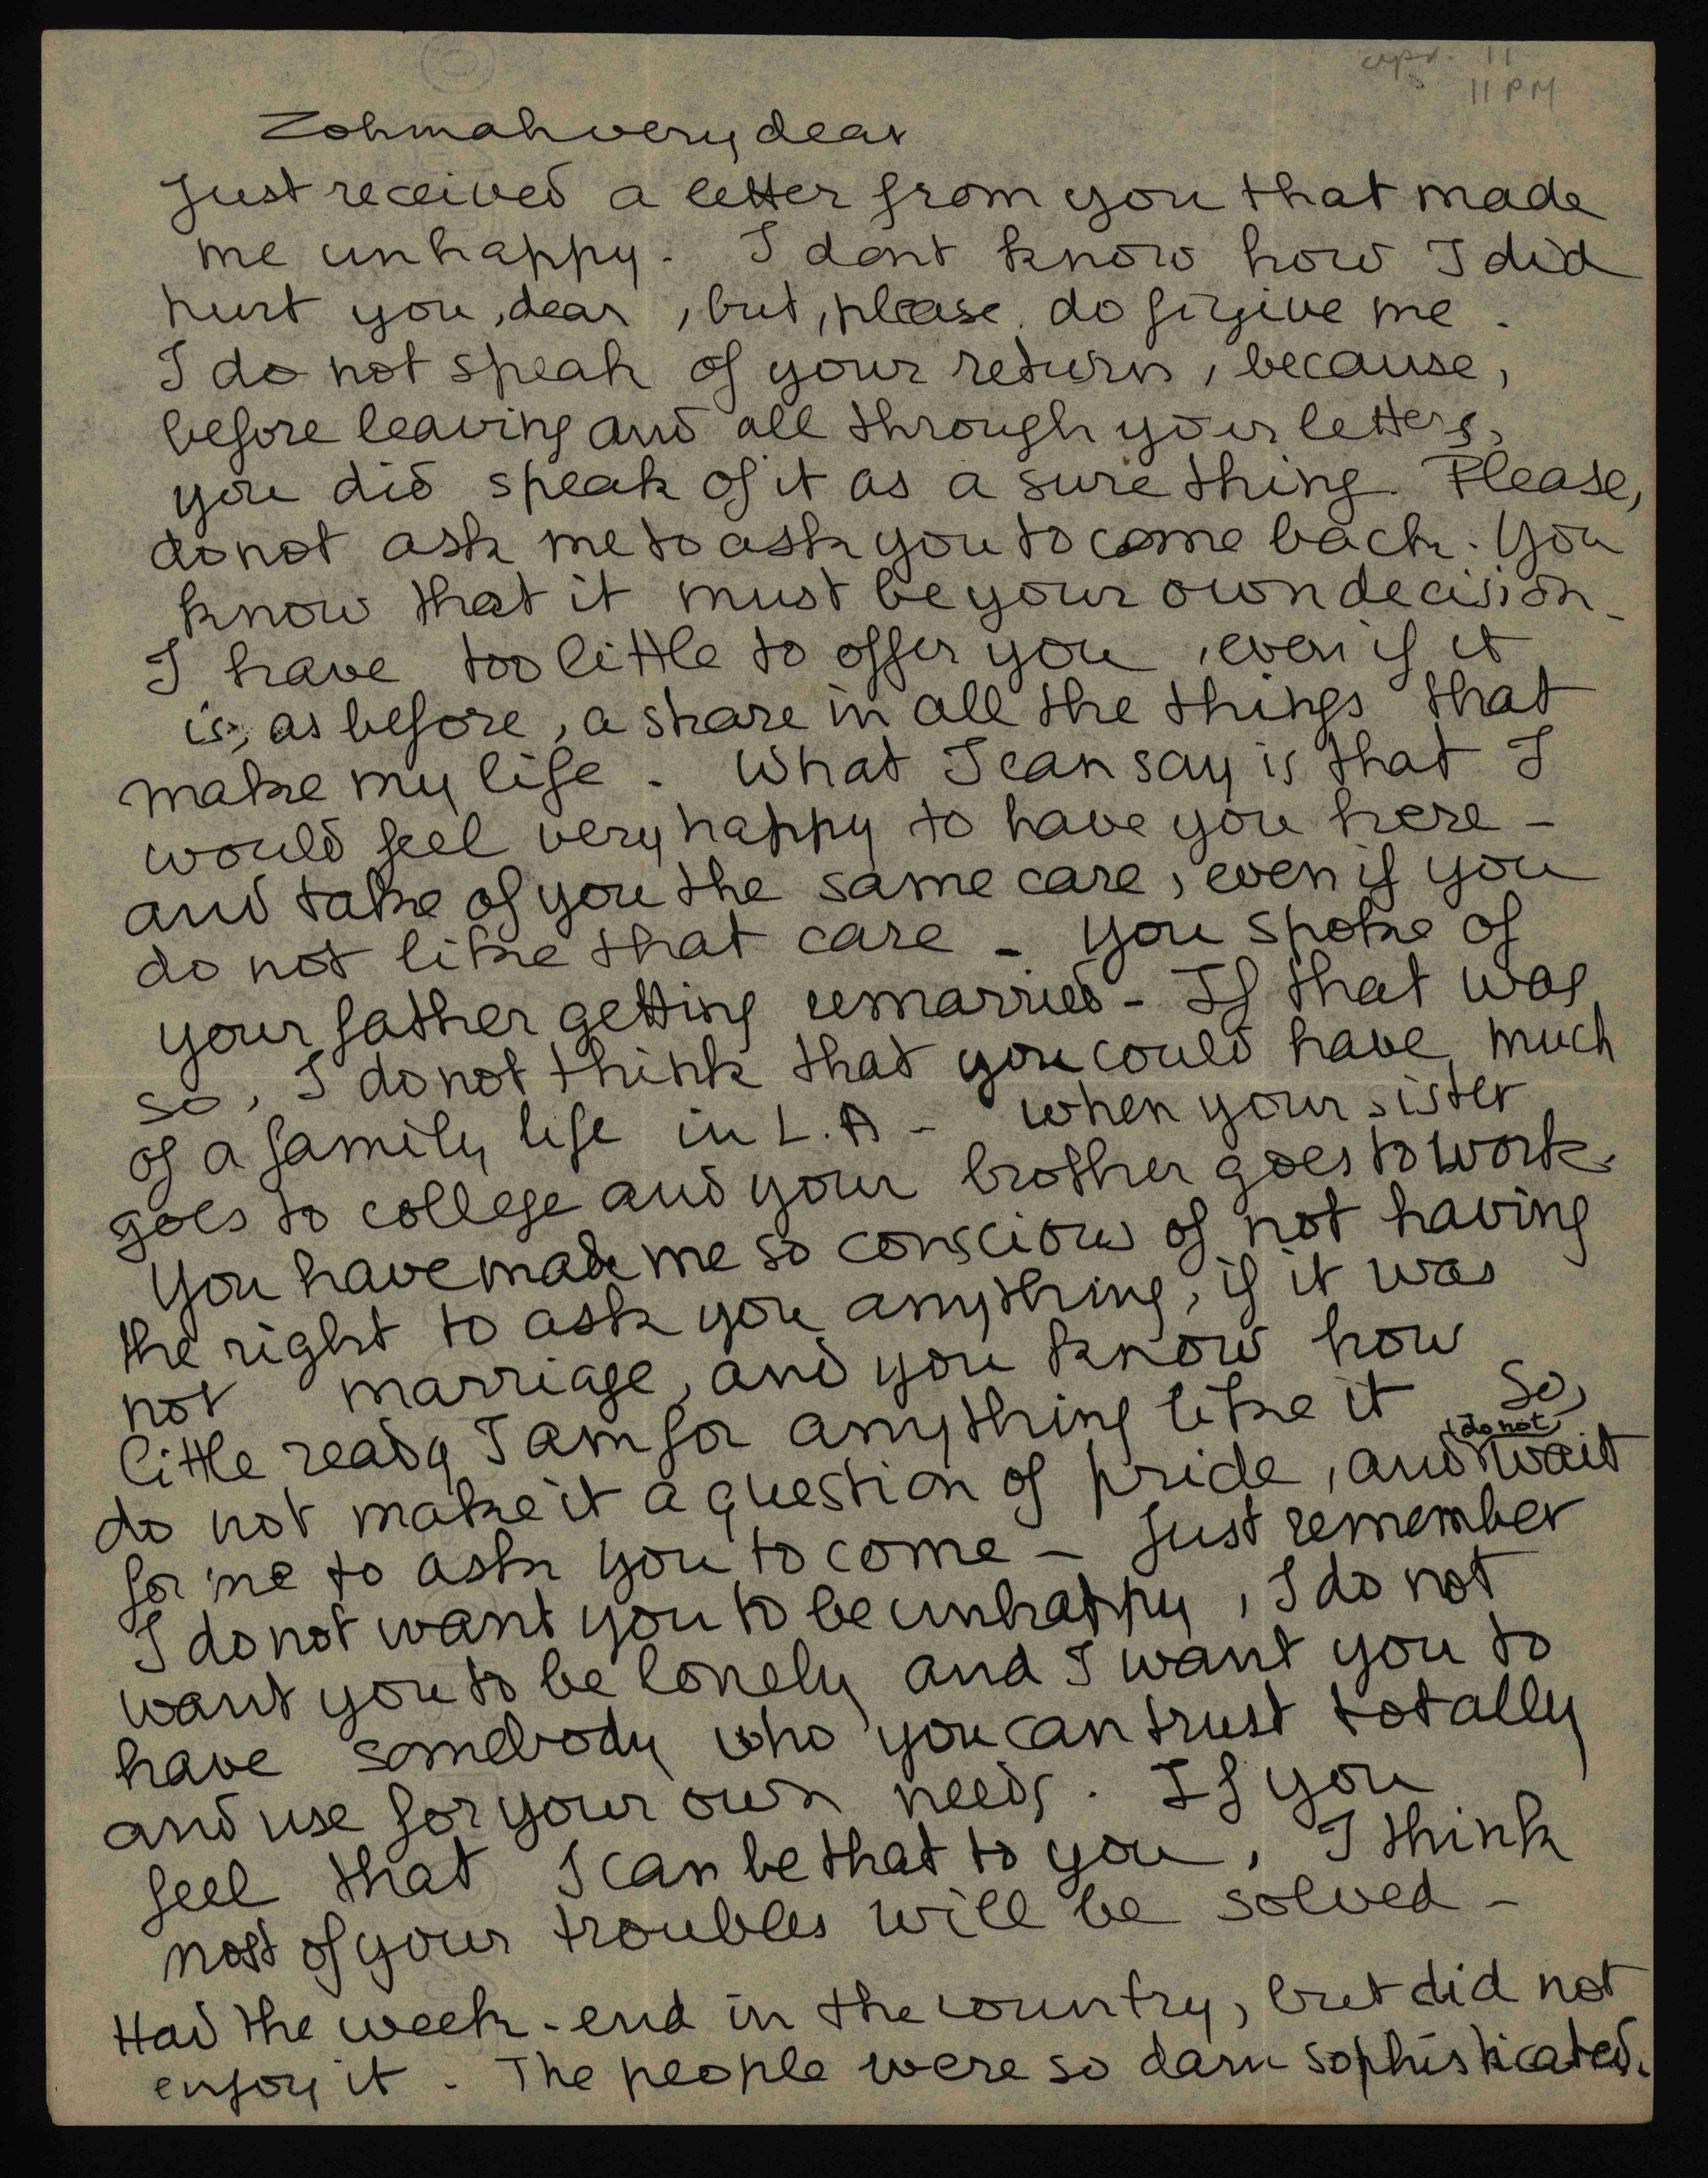 apr. 11
11 PM
Zohmah very dear
Just received a letter from you that made
me unhappy. I dont know how I did
hurt you, dear, but, please, do forgive me.
I do not speak of your return, because,
before leaving and all through your letters,
you did speak of it as a sure thing. Please,
do not ask me to ask you to come back. You
know that it must be your own decision -
I have too little to offer you, even if it
is, as before, a share in all the things that
make my life. What I can say is that I
would feel very happy to have you here -
and take of you the same care, even if you
do not like that care - You spoke of
your father getting remarried - If that was
so, I do not think that you could have much
of a family life in L.A - when your sister
goes to college and your brother goes to work.
You have made me so conscious of not having
the right to ask you anything, if it was
not marriage, and you know how
little ready I am for anything like it So,
do not make it a question of pride, and (do not) wait
for me to ask you to come - Just remember
I do not want you to be unhappy, I do not
want you to be lonely and I want you to
have somebody who you can trust totally
and use for your own needs. If you
feel that I can be that to you, I think
most of your troubles will be solved -
Had the week-end in the country, but did not
enjoy it. The people were so darn sophisticated.